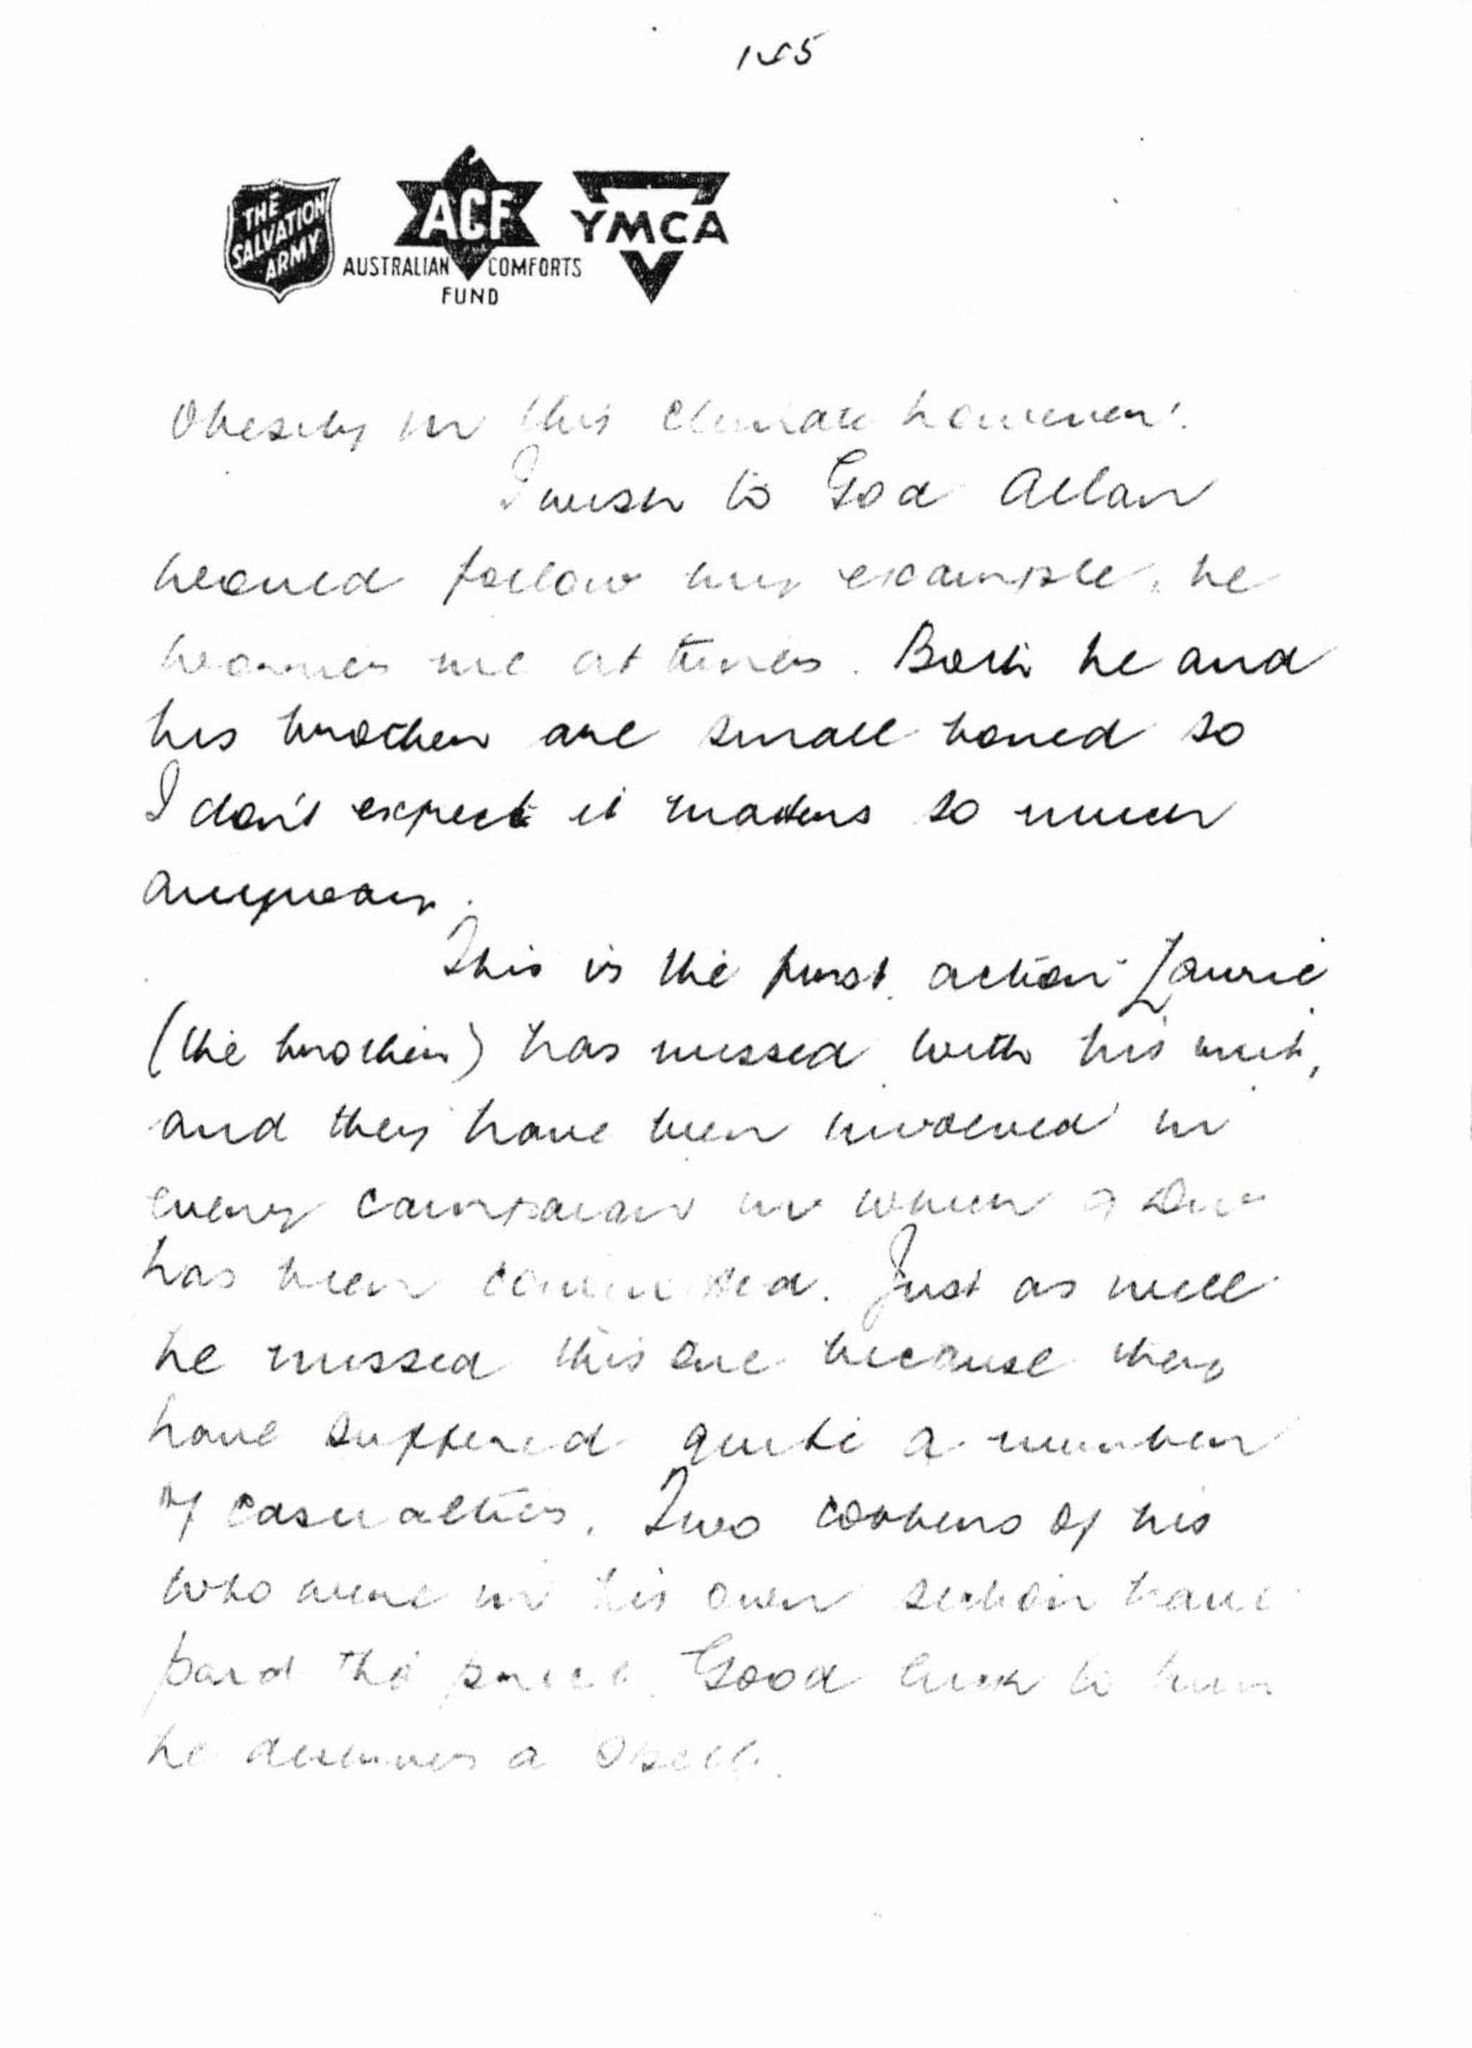 THE
SALVATION
ARMY
ACF
AUSTRALIAN COMFORTS
FUND
YMCA
Obesity in this climate however!
I wish to God Allan
would follow my example, he
worries me at times. Both he and
his brother are small boned so
I don't expect it matters so much
anyway.
This is the first action Laurie
(the brother) has missed with his unit,
and they have been involved in
every campaign in which 9 Div
has been committed. Just as well
he missed this one because they
have suffered quite a number
of casualties. Two cobbers of his
who were in his own section have
paid the price. Good luck to him
he deserves a spell.